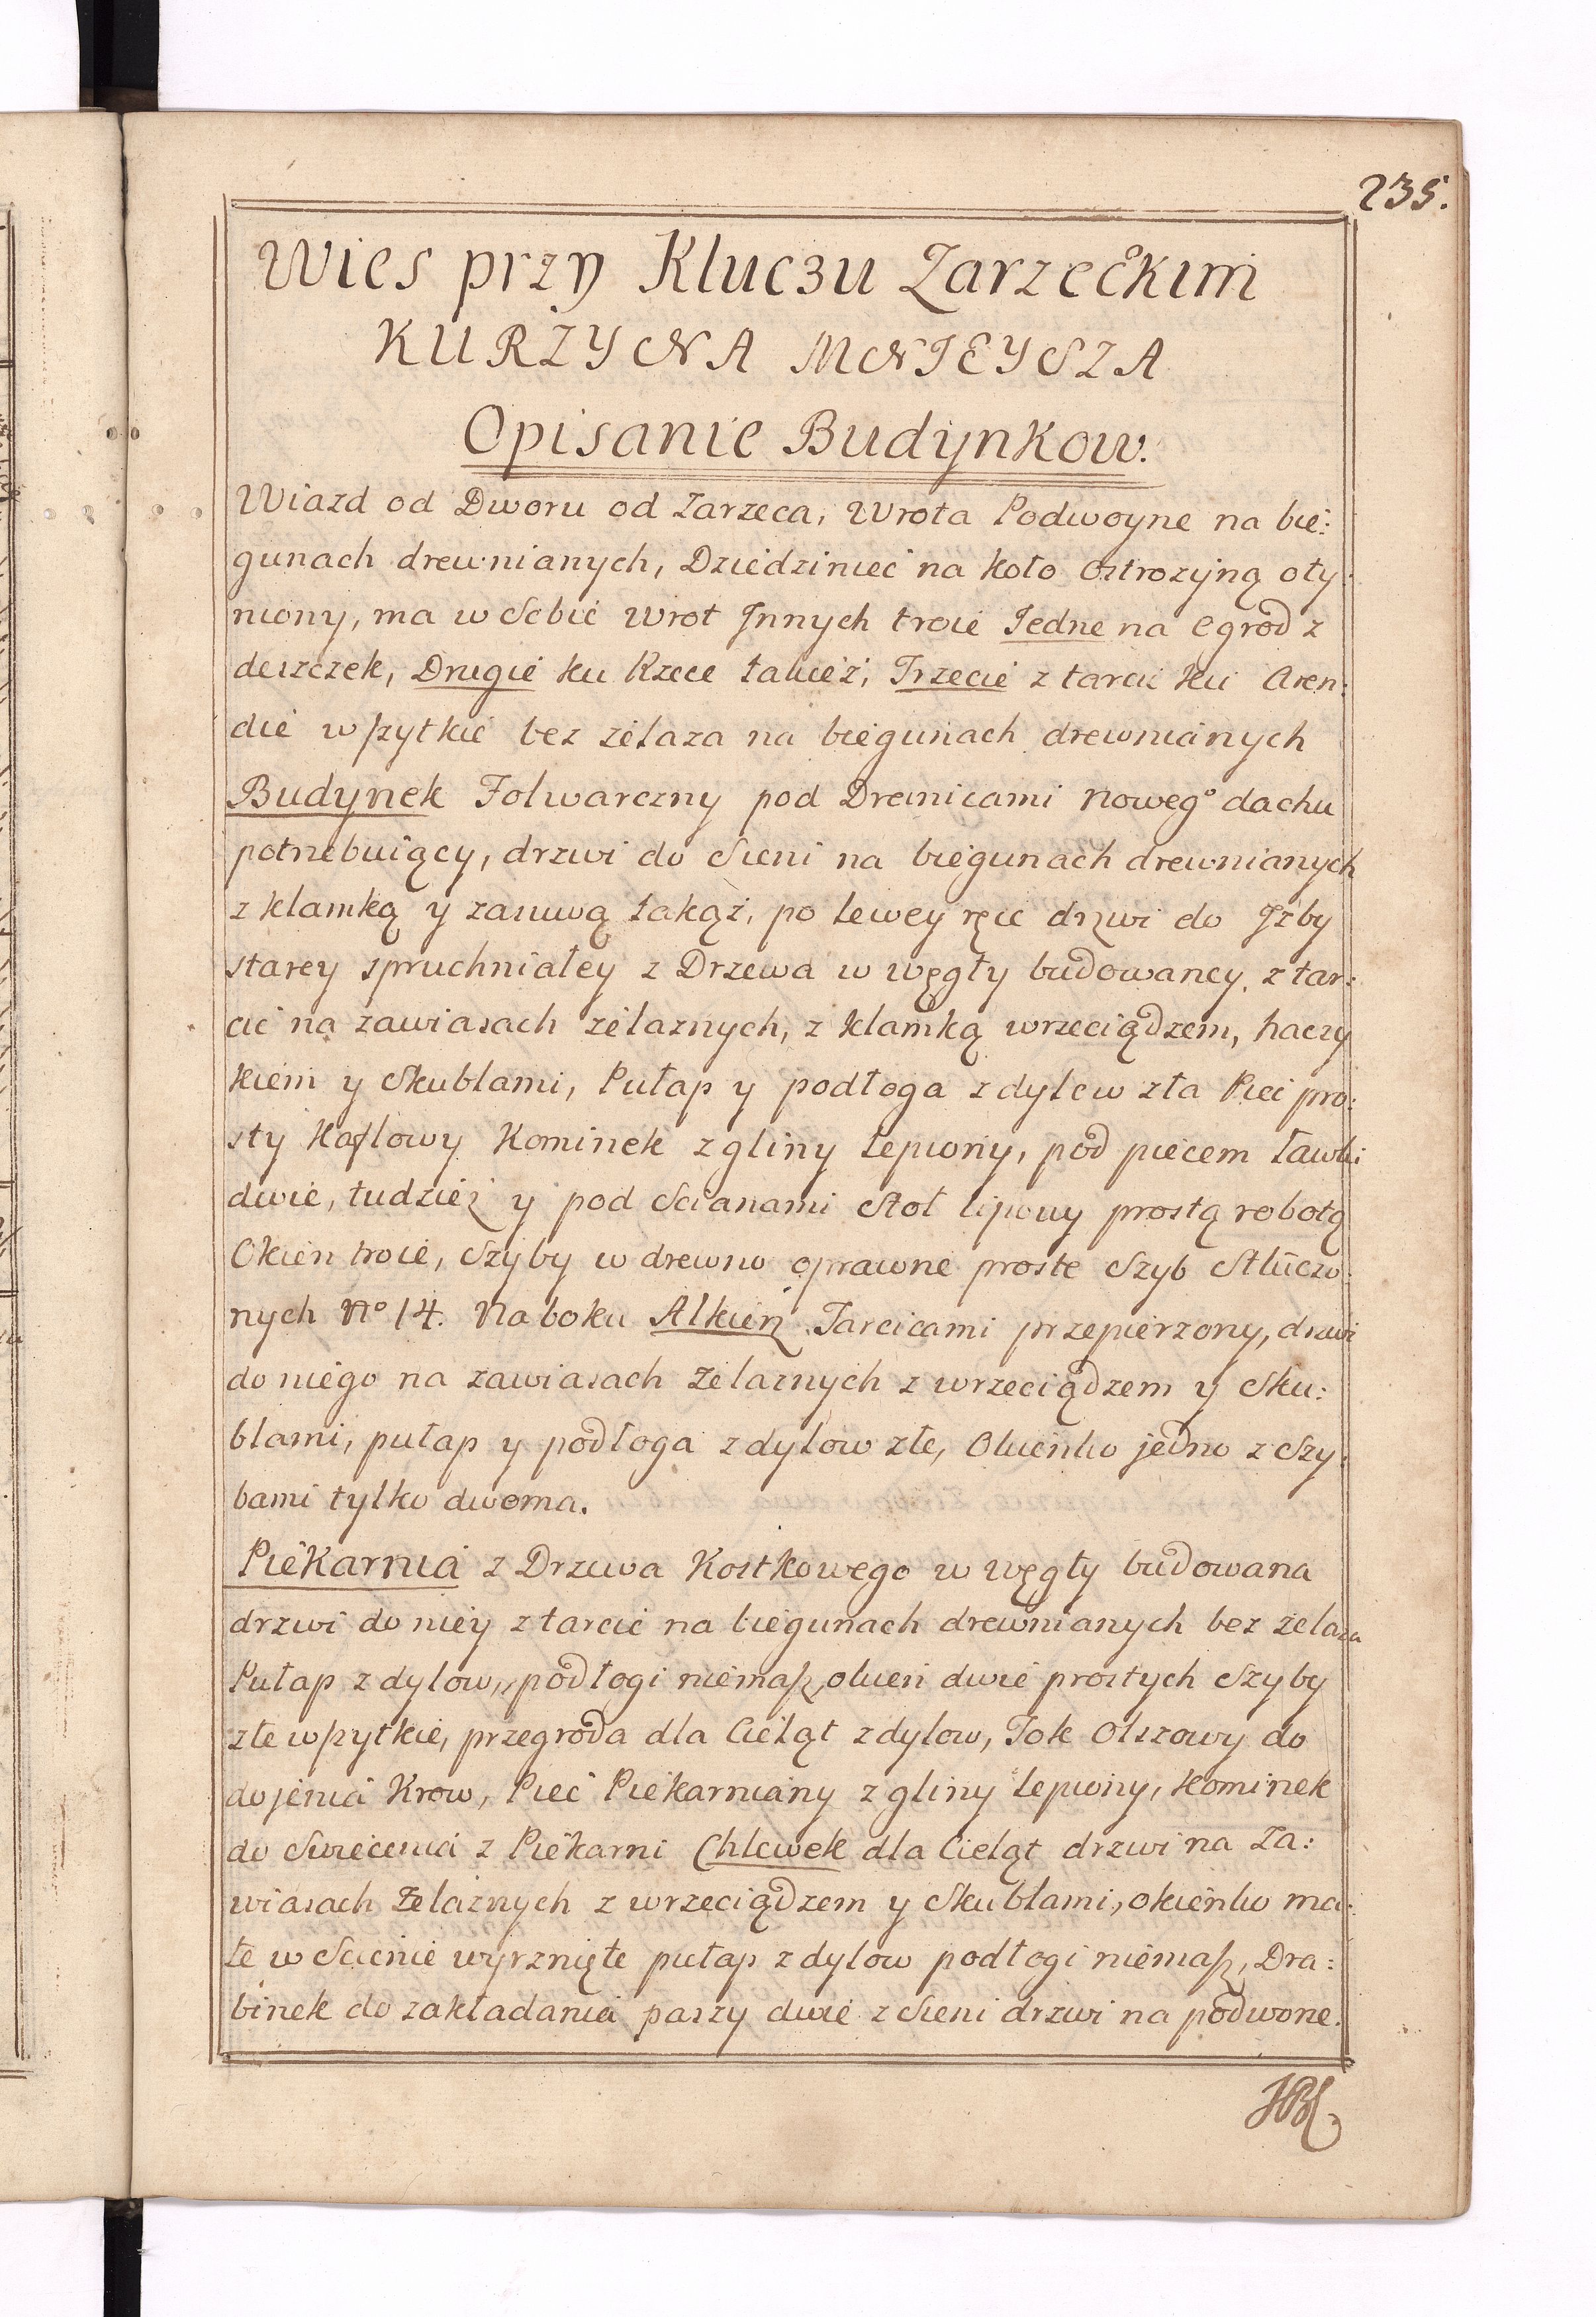 235.
Wies przy Kluczu Zarzeckim
KURZYNA MNIEYSZA
Opisanie Budynkow.
Wiazd od Dworu od Zarzeca, Wrota Podwoyne na bie:
gunach drewnianych, Dziedziniec na koło ostrozyną oty:
niony, ma w Sobie wrot Innych troie Iedne na Ogrod z
deszczek, Drugie ku Rzece takież, Trzecie z tarcic ku Aren:
die wszytkie bez żelaza na biegunach drewnianych
Budynek Folwarczny pod Dranicami Noweg° dachu
potrzebuiący, drzwi do Sieni na biegunach drewnianych
z klamką y zasuwą takąż, po lewey ręce drzwi do Izby
starey spruchniałey z Drzewa w węgły budowaney, z tar:
cic na zawiasach żelaznych, z klamką wrzeciądzem, haczy
kiem y Skublami, Pułap y podłoga z dylow zła Piec pro:
sty Kaflowy Kominek z gliny lepiony, pod piecem ławki
dwie, tudzież y pod Scianami Stoł lipowy prostą robotą
Okien troie, Szyby w drewno oprawne proste Szyb Stłuczo:
nych N° 14. Na boku Alkierz Tarcicami przepierzony, drzwi
do niego na zawiasach żelaznych z wrzeciądzem y Sku:
blami, pułap y podłoga z dylow złe, Okienko jedno z Szy:
bami tylko dwoma.
Piekarnia z Drzewa Kostkowego w węgły budowana
drzwi do niey z tarcic na biegunach drewnianych bez żelaza
Pułap z dylow, podłogi niemasz, okien dwie prostych Szyby
złe wszytkie, przegroda dla Cieląt z dylow, Tok Olszowy do
dojenia Krow, Piec Piekarniany z gliny lepiony, Kominek
do Swiecenia z Piekarni Chlewek dla Cieląt drzwi na Za:
wiasach żelaznych z wrzeciądzem y Skublami, okienko ma:
łe w Scienie wyrznięte pułap z dylow podłogi niemasz, Dra:
binek do zakładania paszy dwie z Sieni drzwi na podworze.